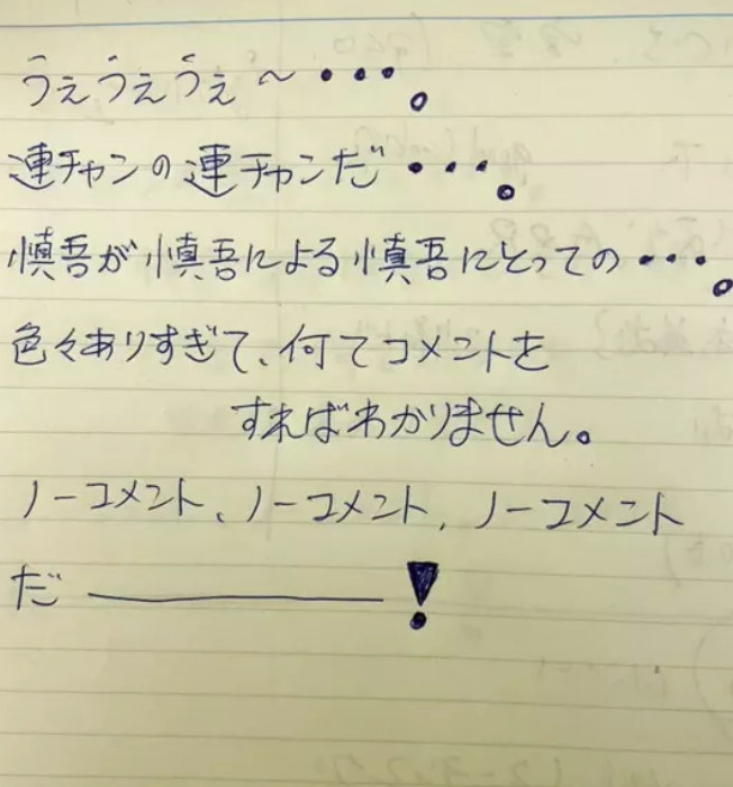 うぇうぇうぇ～・・・。
連チャンの連チャンだ・・・。
慎吾が慎吾による慎吾にとっての・・・。
色々ありすぎて、何てコメントを
すればわかりません。
ノーコメント、ノーコメント、ノーコメント
だ――――!